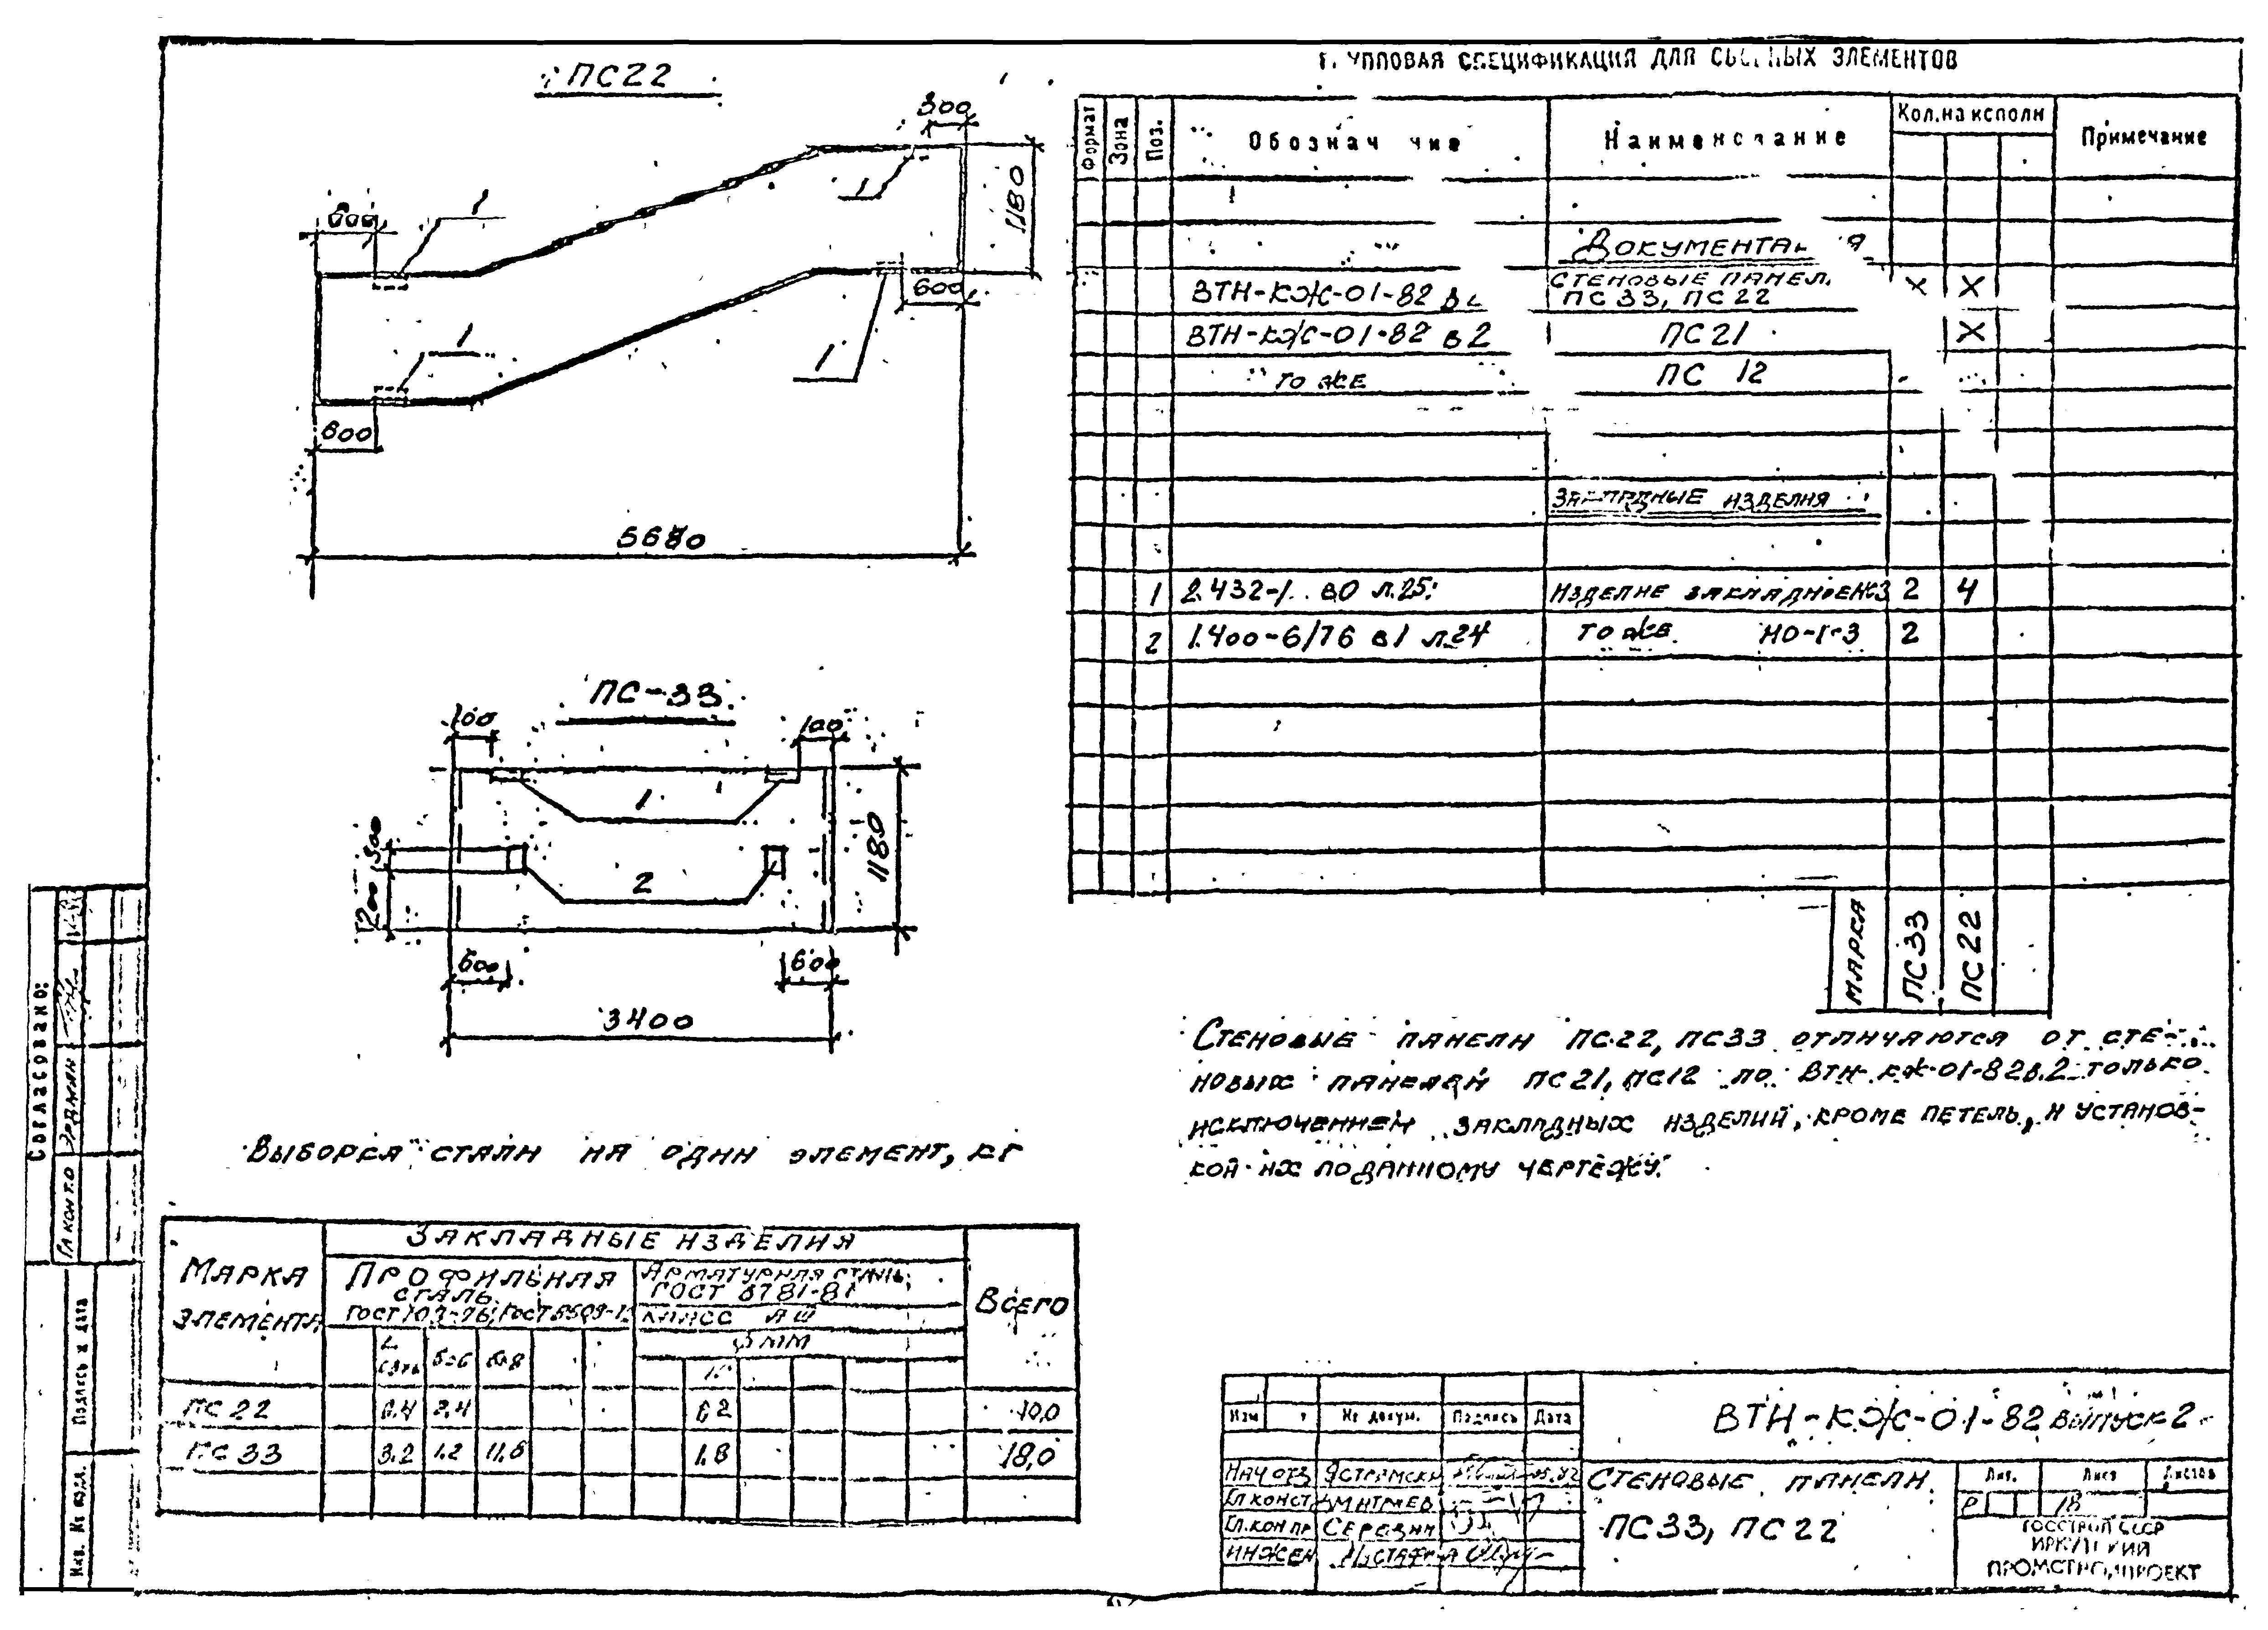 ПС22
300
600
1
1
1180
600
1
1
600
5680
ПС-33
100
100
1
1180
300
2
200
600
600
3400
Выборка стали на один элемент, кг
Марка элемента
Закладные изделия
Всего
Профильная сталь
Арматурная сталь
ГОСТ 5781-81
класс АIII
мм
δ=6
δ=8
ПС22
2,4
10,0
ПС33
3.2
1.2
1.8
18,0
ГРУППОВАЯ СПЕЦИФИКАЦИЯ ДЛЯ СБОРНЫХ ЭЛЕМЕНТОВ
Формат
Зона
Поз.
Обозначение
Наименование
Кол. на исполн
Примечание
Документация
ВТН-КЖ-01-82
Стеновые панели
ПС33, ПС22
X X
ВТН-КЖ-01-82 в2
ПС21
X
то же
ПС 12
Закладные изделия
1 2.432-1 в0 л.25
Изделие закладное
2 4
2 1.400-6/76 в1 л.24
то же
2
Марка
ПС33
ПС22
Стеновые панели ПС22, ПС33 отличаются от сте-
новых панелей ПС21, ПС12 по ВТН-КЖ-01-82 в.2 только
исключением закладных изделий, кроме петель, и установ-
кой их по данному чертежу.
Согласовано:
Гл. конт.о Эрдман
Подпись и дата
Инв. № подл.
Изм
№ докум.
Подпись
Дата
ВТН-КЖ-01-82 выпуск 2
Нач отд
Гл констр
Гл. кон пр
Середин
инжен
Стеновые панели
ПС33, ПС22
Лит.
Лист
Листов
Р
18
ГОССТРОЙ СССР
ИРКУТСКИЙ
ПРОМСТРОЙПРОЕКТ